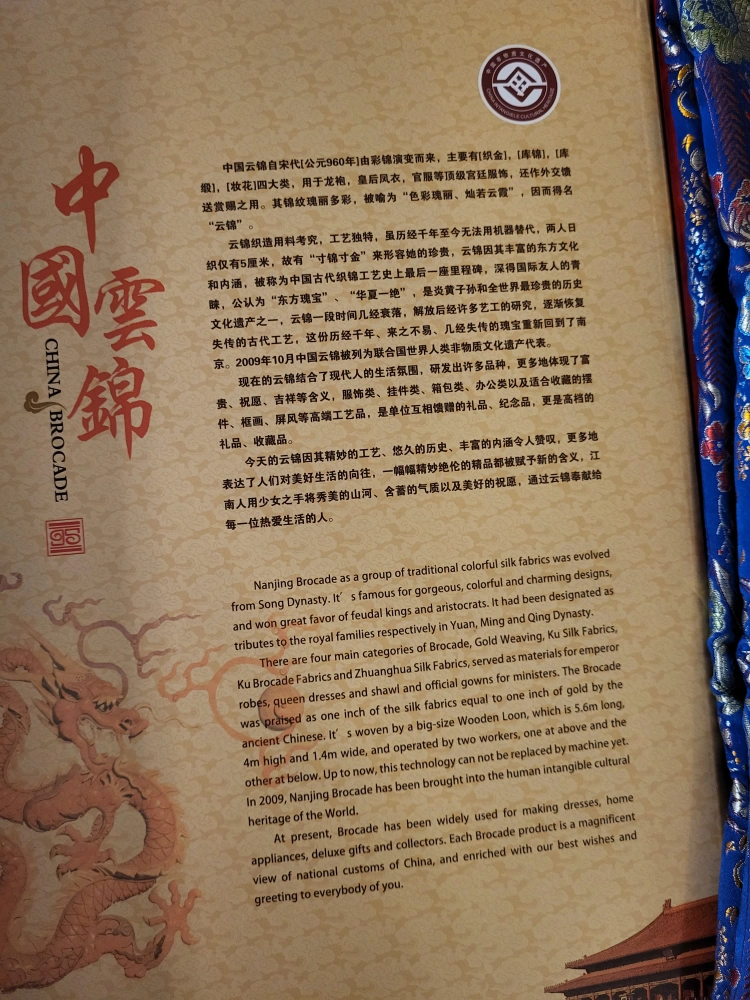 中國雲錦
CHINA BROCADE
中国非物质文化遗产
CHINA INTANGIBLE CULTURAL HERITAGE
中国云锦自宋代[公元960年]由彩锦演变而来，主要有[织金]，[库锦]，[库
缎]，[妆花]四大类，用于龙袍，皇后凤衣，官服等顶级宫廷服饰，还作外交馈
送赏赐之用。其锦纹瑰丽多彩，被喻为“色彩瑰丽、灿若云霞”，因而得名
“云锦”。
云锦织造用料考究，工艺独特，虽历经千年至今无法用机器替代，两人日
织仅有5厘米，故有“寸锦寸金”来形容她的珍贵，云锦因其丰富的东方文化
和内涵，被称为中国古代织锦工艺史上最后一座里程碑，深得国际友人的青
睐，公认为“东方瑰宝”、“华夏一绝”，是炎黄子孙和全世界最珍贵的历史
文化遗产之一，云锦一段时间几经衰落，解放后经许多艺工的研究，逐渐恢复
失传的古代工艺，这份历经千年、来之不易、几经失传的瑰宝重新回到了南
京。2009年10月中国云锦被列为联合国世界人类非物质文化遗产代表。
现在的云锦结合了现代人的生活氛围，研发出许多品种，更多地体现了富
贵、祝愿、吉祥等含义，服饰类、挂件类、箱包类、办公类以及适合收藏的摆
件、框画、屏风等高端工艺品，是单位互相馈赠的礼品、纪念品，更是高档的
礼品、收藏品。
今天的云锦因其精妙的工艺、悠久的历史、丰富的内涵令人赞叹，更多地
表达了人们对美好生活的向往，一幅幅精妙绝伦的精品都被赋予新的含义，江
南人用少女之手将秀美的山河、含蓄的气质以及美好的祝愿，通过云锦奉献给
每一位热爱生活的人。
Nanjing Brocade as a group of traditional colorful silk fabrics was evolved
from Song Dynasty. It′ s famous for gorgeous, colorful and charming designs,
and won great favor of feudal kings and aristocrats. It had been designated as
tributes to the royal families respectively in Yuan, Ming and Qing Dynasty.
There are four main categories of Brocade, Gold Weaving, Ku Silk Fabrics,
Ku Brocade Fabrics and Zhuanghua Silk Fabrics, served as materials for emperor
robes, queen dresses and shawl and official gowns for ministers. The Brocade
was praised as one inch of the silk fabrics equal to one inch of gold by the
ancient Chinese. It′ s woven by a big-size Wooden Loon, which is 5.6m long,
4m high and 1.4m wide, and operated by two workers, one at above and the
other at below. Up to now, this technology can not be replaced by machine yet.
In 2009, Nanjing Brocade has been brought into the human intangible cultural
heritage of the World.
At present, Brocade has been widely used for making dresses, home
appliances, deluxe gifts and collectors. Each Brocade product is a magnificent
view of national customs of China, and enriched with our best wishes and
greeting to everybody of you.